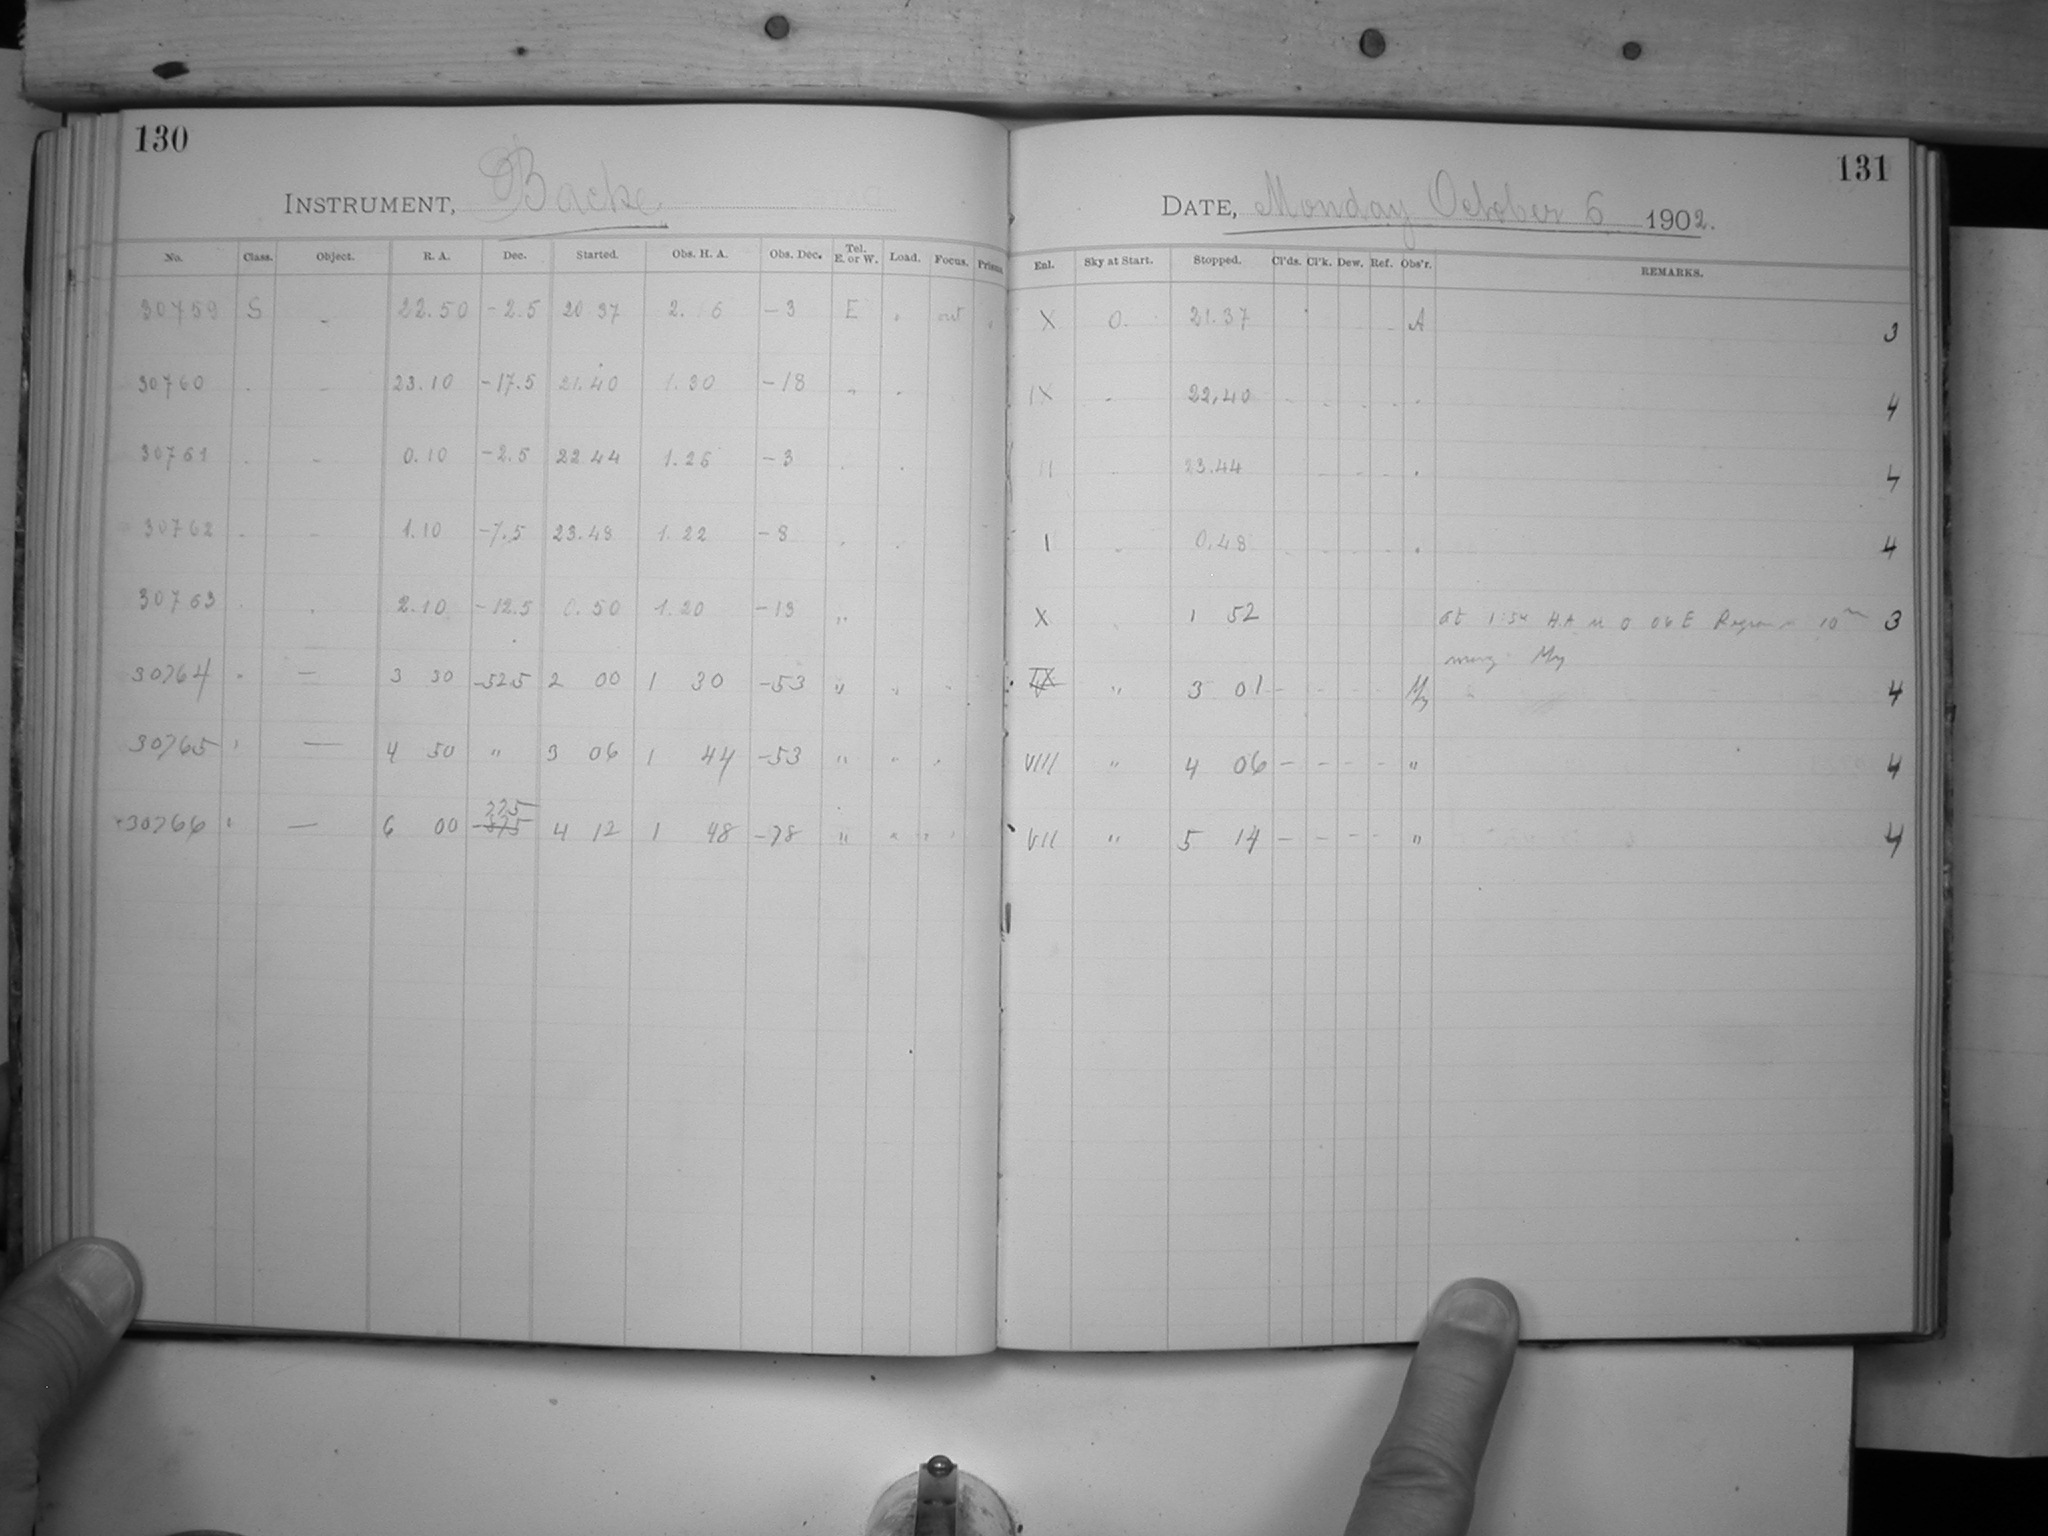 130
INSTRUMENT, Bache
No. Class. Object. R. A. Dec. Started. Obs. H. A. Obs. Dec. Tel. E. or W. Load. Focus. Prisms
30759 S 22.50 -2.5 20 37 2. 6 -3 E out
30760 23.10 -17.5 21.40 1.30 -18
30761 0.10 -2.5 22 44 1.26 -3
30762 1.10 -7.5 23.48 1.22 -8
30763 2.10 -12.5 0.50 1.20 -13 "
30764 — 3 30 -525 2 00 1 30 -53 "
30765 — 4 50 " 3 06 1 44 -53 " "
30766 — 6 00 4 12 1 48 -78 "
131
DATE, Monday October 6 1902.
Enl. Sky at Start. Stopped. Cl'ds. Cl'k. Dew. Ref. Obs'r. REMARKS.
X 0. 21.37 A 3
IX 22.40 4
II 23.44 4
I 0.48 4
X 1 52 at 1:54 H.A 0 06 E 10m 3
IX " 3 01 - - - - My 4
VIII " 4 06 - - - - " 4
VII " 5 14 - - - - " 4